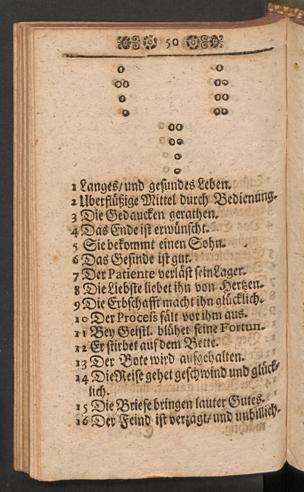 50
1 Langes/ und gesundes Leben.
2 Uberflüßige Mittel durch Bedienung.
3 Die Gedaucken gerathen.
4 Das Ende ist erwünscht.
5 Sie bekommt einen Sohn.
6 Das Gesinde ist gut.
7 Der Patiente verläst sein Lager.
8 Die Liebste liebet ihn von Hertzen.
9 Die Erbschafft macht ihn glücklich.
10 Der Process fält vor ihm aus.
11 Bey Geistl. blühet seine Fortun.
12 Er stirbet auf dem Bette.
13 Der Bote wird aufgehalten.
14 Die Reise gehet geschwind und glück-
lich.
15 Die Briefe bringen lauter Gutes.
16 Der Feind ist verzagt/ und unbillich.